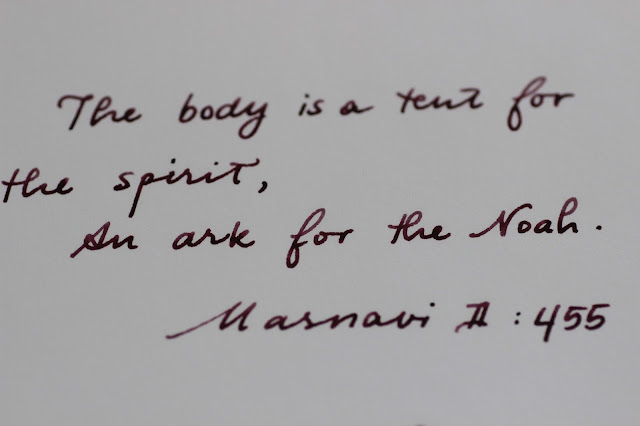 The body is a tent for
the spirit,
An ark for the Noah.
Masnavi II : 455